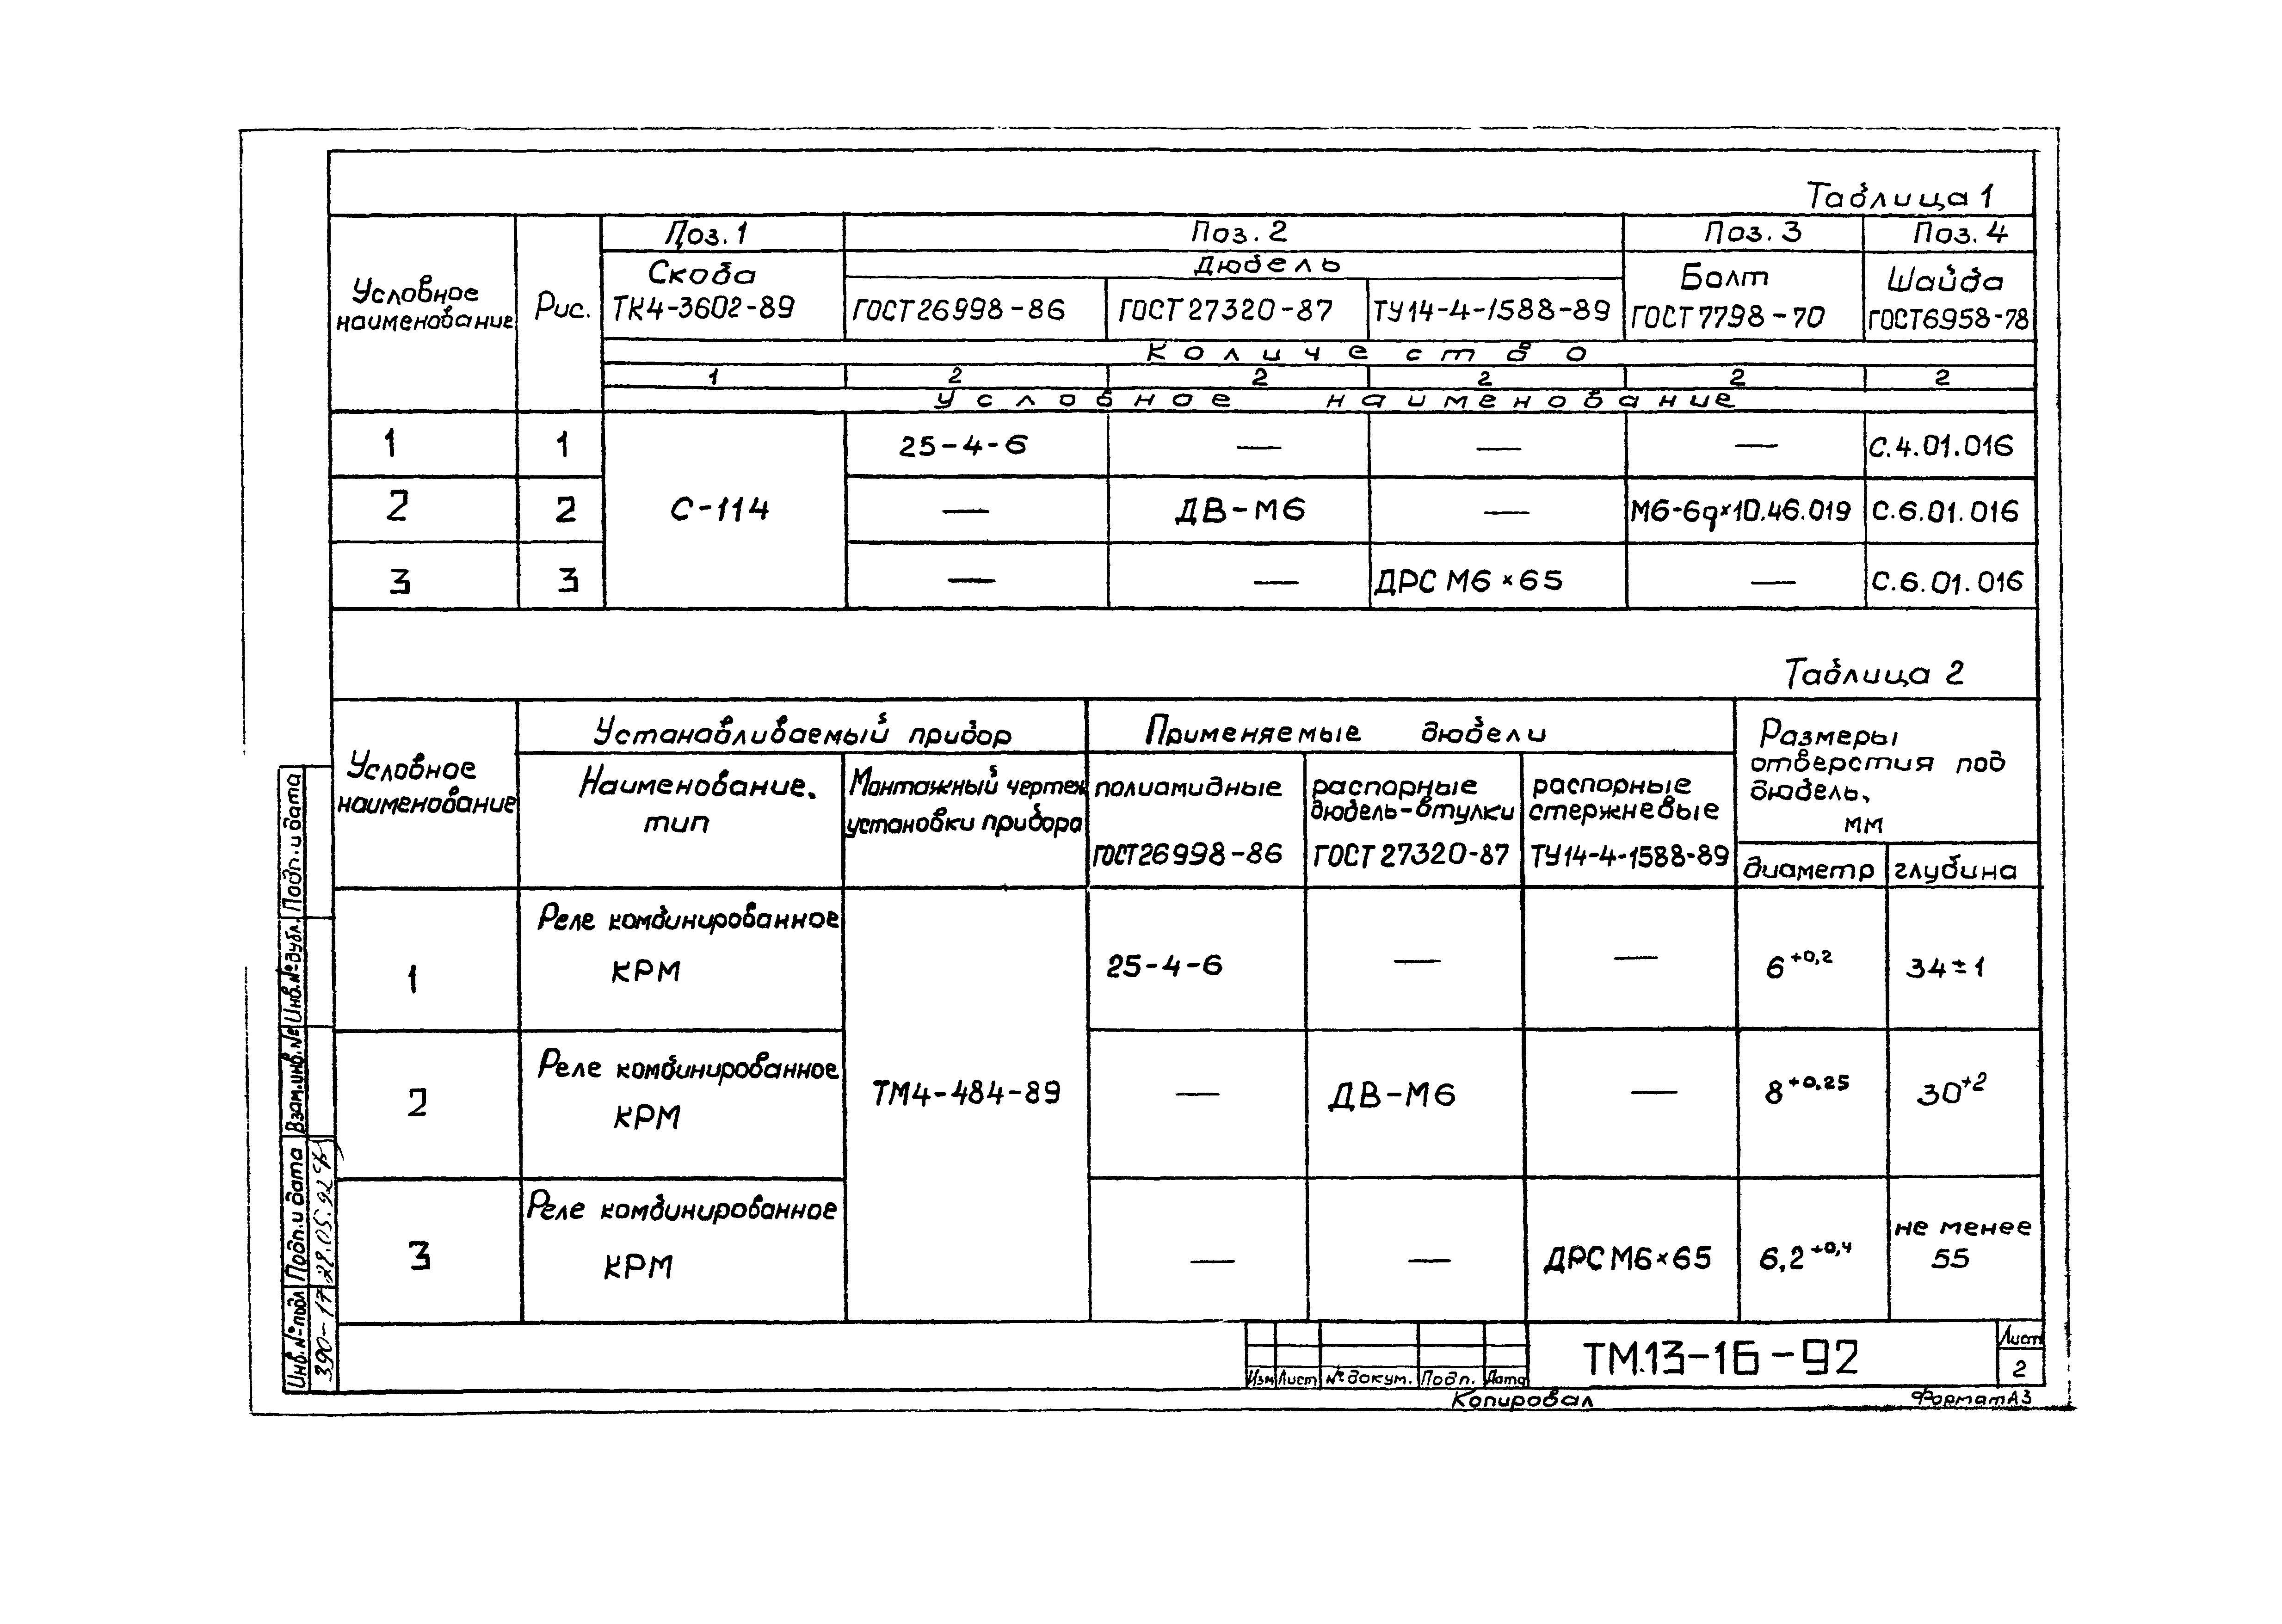 Таблица 1
Поз. 1 Поз. 2 Поз. 3 Поз. 4
Условное наименование
Рис.
Скоба
ТК4-3602-89
Дюбель
ГОСТ 26998-86 ГОСТ 27320-87 ТУ14-4-1588-89
Болт
ГОСТ 7798-70
Шайба
ГОСТ6958-78
Количество
1 2 2 2 2 2
Условное наименование
1 1 25-4-6 — — — С.4.01.016
2 2 С-114 — ДВ-М6 — М6-6q×10.46.019 С.6.01.016
3 3 — — ДРС М6×65 — С.6.01.016
Таблица 2
Условное
наименование
Устанавливаемый прибор
Наименование.
тип
Монтажный чертеж
установки прибора
Применяемые дюбели
полиамидные
ГОСТ26998-86
распорные
дюбель-втулки
ГОСТ 27320-87
распорные
стержневые
ТУ14-4-1588-89
Размеры
отверстия под
дюбель,
мм
диаметр глубина
Реле комбинированное
1 КРМ 25-4-6 — — 6+0,2 34±1
Реле комбинированное
2 КРМ ТМ4-484-89 — ДВ-М6 — 8+0,25 30+2
Реле комбинированное
3 КРМ — — ДРС М6×65 6,2+0,4 не менее
55
Изм Лист № докум. Подп. Дата
ТМ.13-16-92
Лист
2
Копировал
Формат А3
Подп. и дата
Инв. № дубл.
Взам. инв. №
Подп. и дата
28.05.92
Инв. № подл
390-17